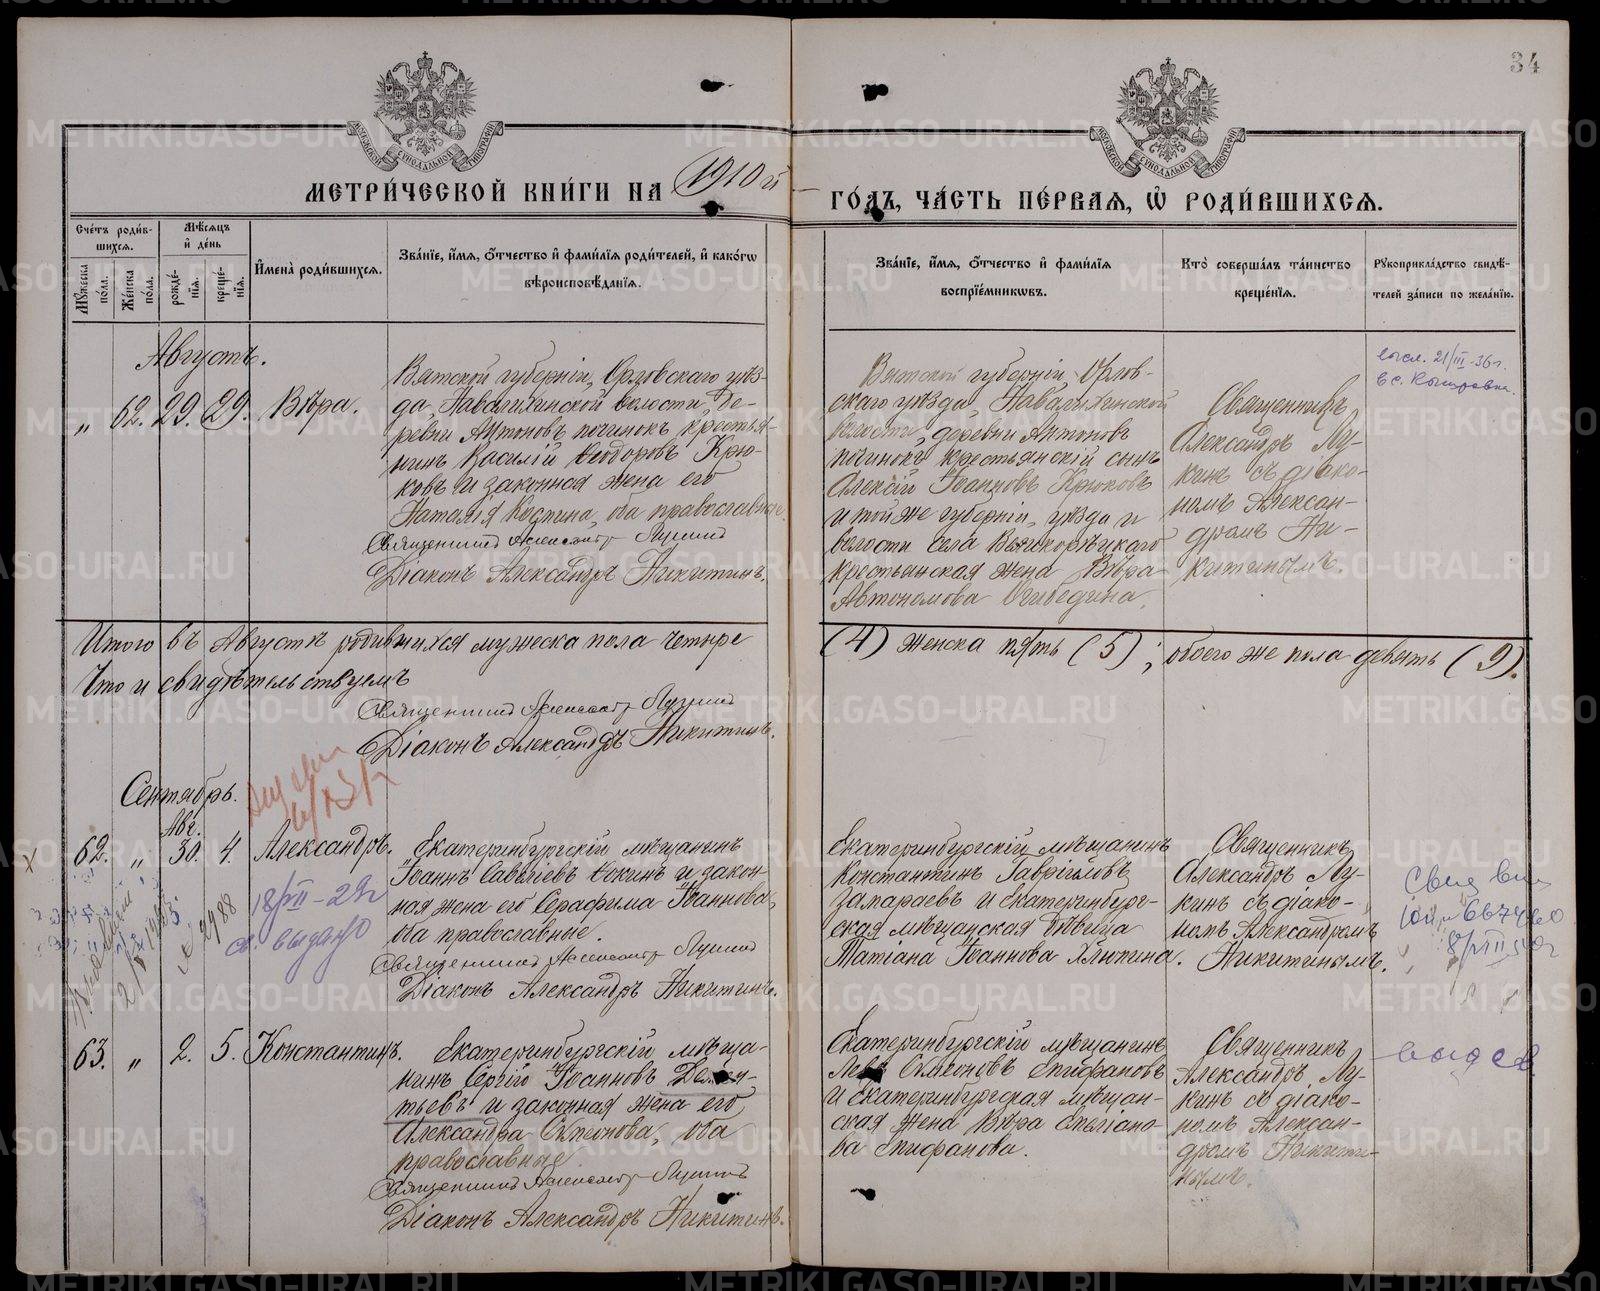 34
МЕТРИ́ЧЕСКОЙ КНИ́ГИ НА 1910 й
ГО́ДЪ, ЧА́СТЬ ПЕ́РВАЯ, Ѡ҆ РОДИ́ВШИХСѦ.
МОСКОВСКОЙ СѴНОДАЛЬНОЙ ТИПОГРАФІИ
МОСКОВСКОЙ СѴНОДАЛЬНОЙ ТИПОГРАФІИ
Сче́тъ роди́в-
шихся.
Мѣ́сяцъ
и҆ де́нь
Му́жеска по́ла.
Же́нска по́ла.
рожде́-
нїя.
креще́-
нїя.
И҆мена̀ роди́вшихся.
Зва́нїе, и҆́мя, ѻ҆́тчество и҆ фами́лїя роди́телей, и҆ како́гѡ
вѣроисповѣ́данїя.
Зва́нїе, и҆́мя, ѻ҆́тчество и҆ фами́лїя
воспрїе́мникѡвъ.
Кто̀ соверша́лъ та́инство
креще́нїя.
Рꙋкоприкла́дство свидѣ́-
телей за́писи по жела́нїю.
Августъ.
„ 62. 29. 29. Вѣра.
Вятской губерніи, Орловскаго уѣз-
да, Навалихинской волости, де-
ревни Антоновъ починокъ крестья-
нинъ Василій Ѳеодоровъ Крю-
ковъ и законная жена его
Наталія Космина, оба православные.
Священникъ Александръ Лукинъ
Діаконъ Александръ Никитинъ.
Вятской губерніи, Орлов-
скаго уѣзда, Навалихинской
волости, деревни Антоновъ
починокъ крестьянскій сынъ
Алексій Іоанновъ Крюковъ
и той же губерніи, уѣзда и
волости села Великорѣцкаго
крестьянская жена Вѣра
Автономова
Священникъ
Александръ Лу-
кинъ съ діако-
номъ Алексан-
дромъ Ни-
китинымъ.
21/III-36 г.
Итого въ Августѣ родившихся мужеска пола четыре
(4) женска пять (5); обоего же пола девять (9).
Что и свидѣтельствуемъ
Священникъ Александръ Лукинъ
Діаконъ Александръ Никитинъ.
Сентябрь.
Авг.
62. „ 30. 4. Александръ.
18/VII-29 г
св. выдано
2988
Екатеринбургскій мѣщанинъ
Іоаннъ Савычевъ Ѳокинъ и закон-
ная жена его Серафима Іоаннова,
оба православные.
Священникъ Александръ Лукинъ
Діаконъ Александръ Никитинъ.
Екатеринбургскій мѣщанинъ
Константинъ Гавріиловъ
Замараевъ и Екатеринбург-
ская мѣщанская дѣвица
Татіана Іоаннова Хлюпина.
Священникъ
Александръ Лу-
кинъ съ діако-
номъ Александромъ
Никитинымъ.
63. „ 2. 5. Константинъ.
Екатеринбургскій мѣща-
нинъ Сергій Іоанновъ Демен-
тьевъ и законная жена его
Александра Симеонова, оба
православные.
Священникъ Александръ Лукинъ
Діаконъ Александръ Никитинъ.
Екатеринбургскій мѣщанинъ
Левъ Симеоновъ Епифановъ
и Екатеринбургская мѣщан-
ская жена Вѣра
Епифанова.
Священникъ
Александръ Лу-
кинъ съ діако-
номъ Алексан-
дромъ Никити-
нымъ.
METRIKI.GASO-URAL.RU